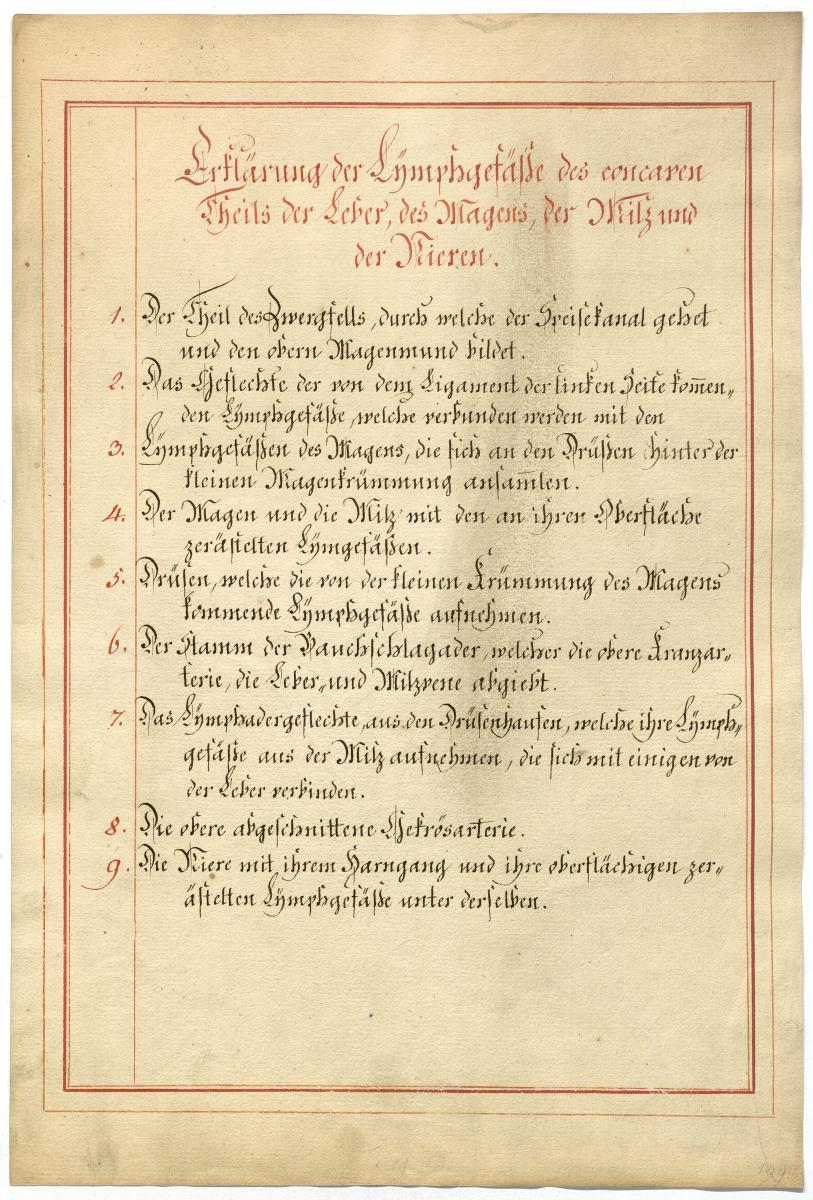 Erklärung der Lÿmphgefäße des concaven
Theils der Leber, des Magens, der Milz und
der Nieren.
1. Der Theil des Zwergfells, durch welche der Speisekanal gehet
und den obern Magenmund bildet.
2. Das Geflechte der von dem Ligament der linken Seite kom̅en„
den Lÿmphgefäße, welche verbunden werden mit den
3. Lÿmphgefäßen des Magens, die sich an den Drüßen hinter der
kleinen Magenkrümmung ansam̅len.
4. Der Magen und die Milz mit den an ihrer Oberfläche
zerästelten Lÿmgefäßen.
5. Drüsen, welche die von der kleinen Krümmung des Magens
kommende Lÿmphgefäße aufnehmen.
6. Der Stamm der Bauchschlagader, welcher die obere Kranzar„
terie, die Leber„ und Milzvene abgiebt.
7. Das Lÿmphadergeflechte, aus den Drüsenhaufen, welche ihre Lÿmph„
gefäße aus der Milz aufnehmen, die sich mit einigen von
der Leber verbinden.
8. Die obere abgeschnittene Gekrösarterie.
9. Die Niere mit ihrem Harngang und ihre oberflächigen zer„
ästelten Lÿmphgefäße unter derselben.